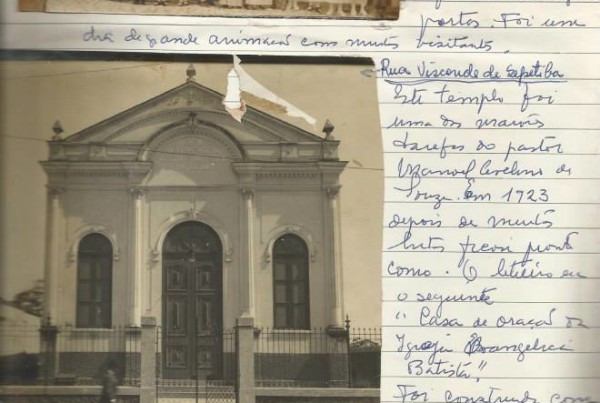 portas. Foi um
dia de grande animação com muitos visitantes.
Rua Visconde de Sepetiba
Este templo foi
uma das maiores
tarefas do pastor
Manoel Avelino de
Souza. Em 1923
depois de muitas
lutas ficou pronto
como. O letreiro era
o seguinte
"Casa de oração da
Igreja Evangelica
Batista."
Foi construido com